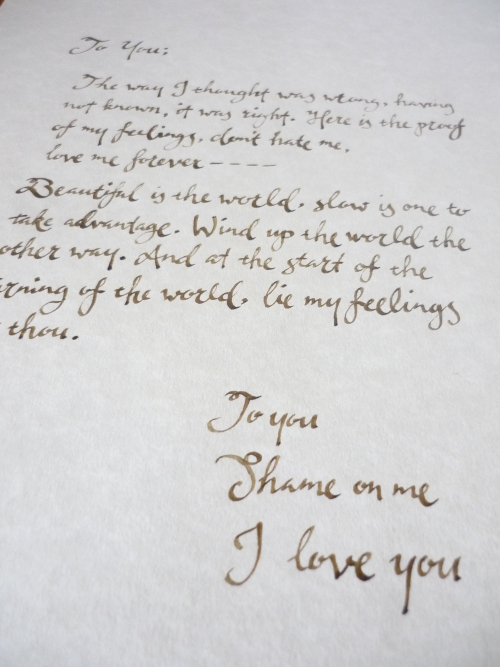 To You:
The way I thought was wrong, having
not known, it was right. Here is the proof
of my feelings, don't hate me,
love me forever - - - -
Beautiful is the world, slow is one to
take advantage. Wind up the world the
other way. And at the start of the
rning of the world, lie my feelings
thou.
To you
Shame on me
I love you